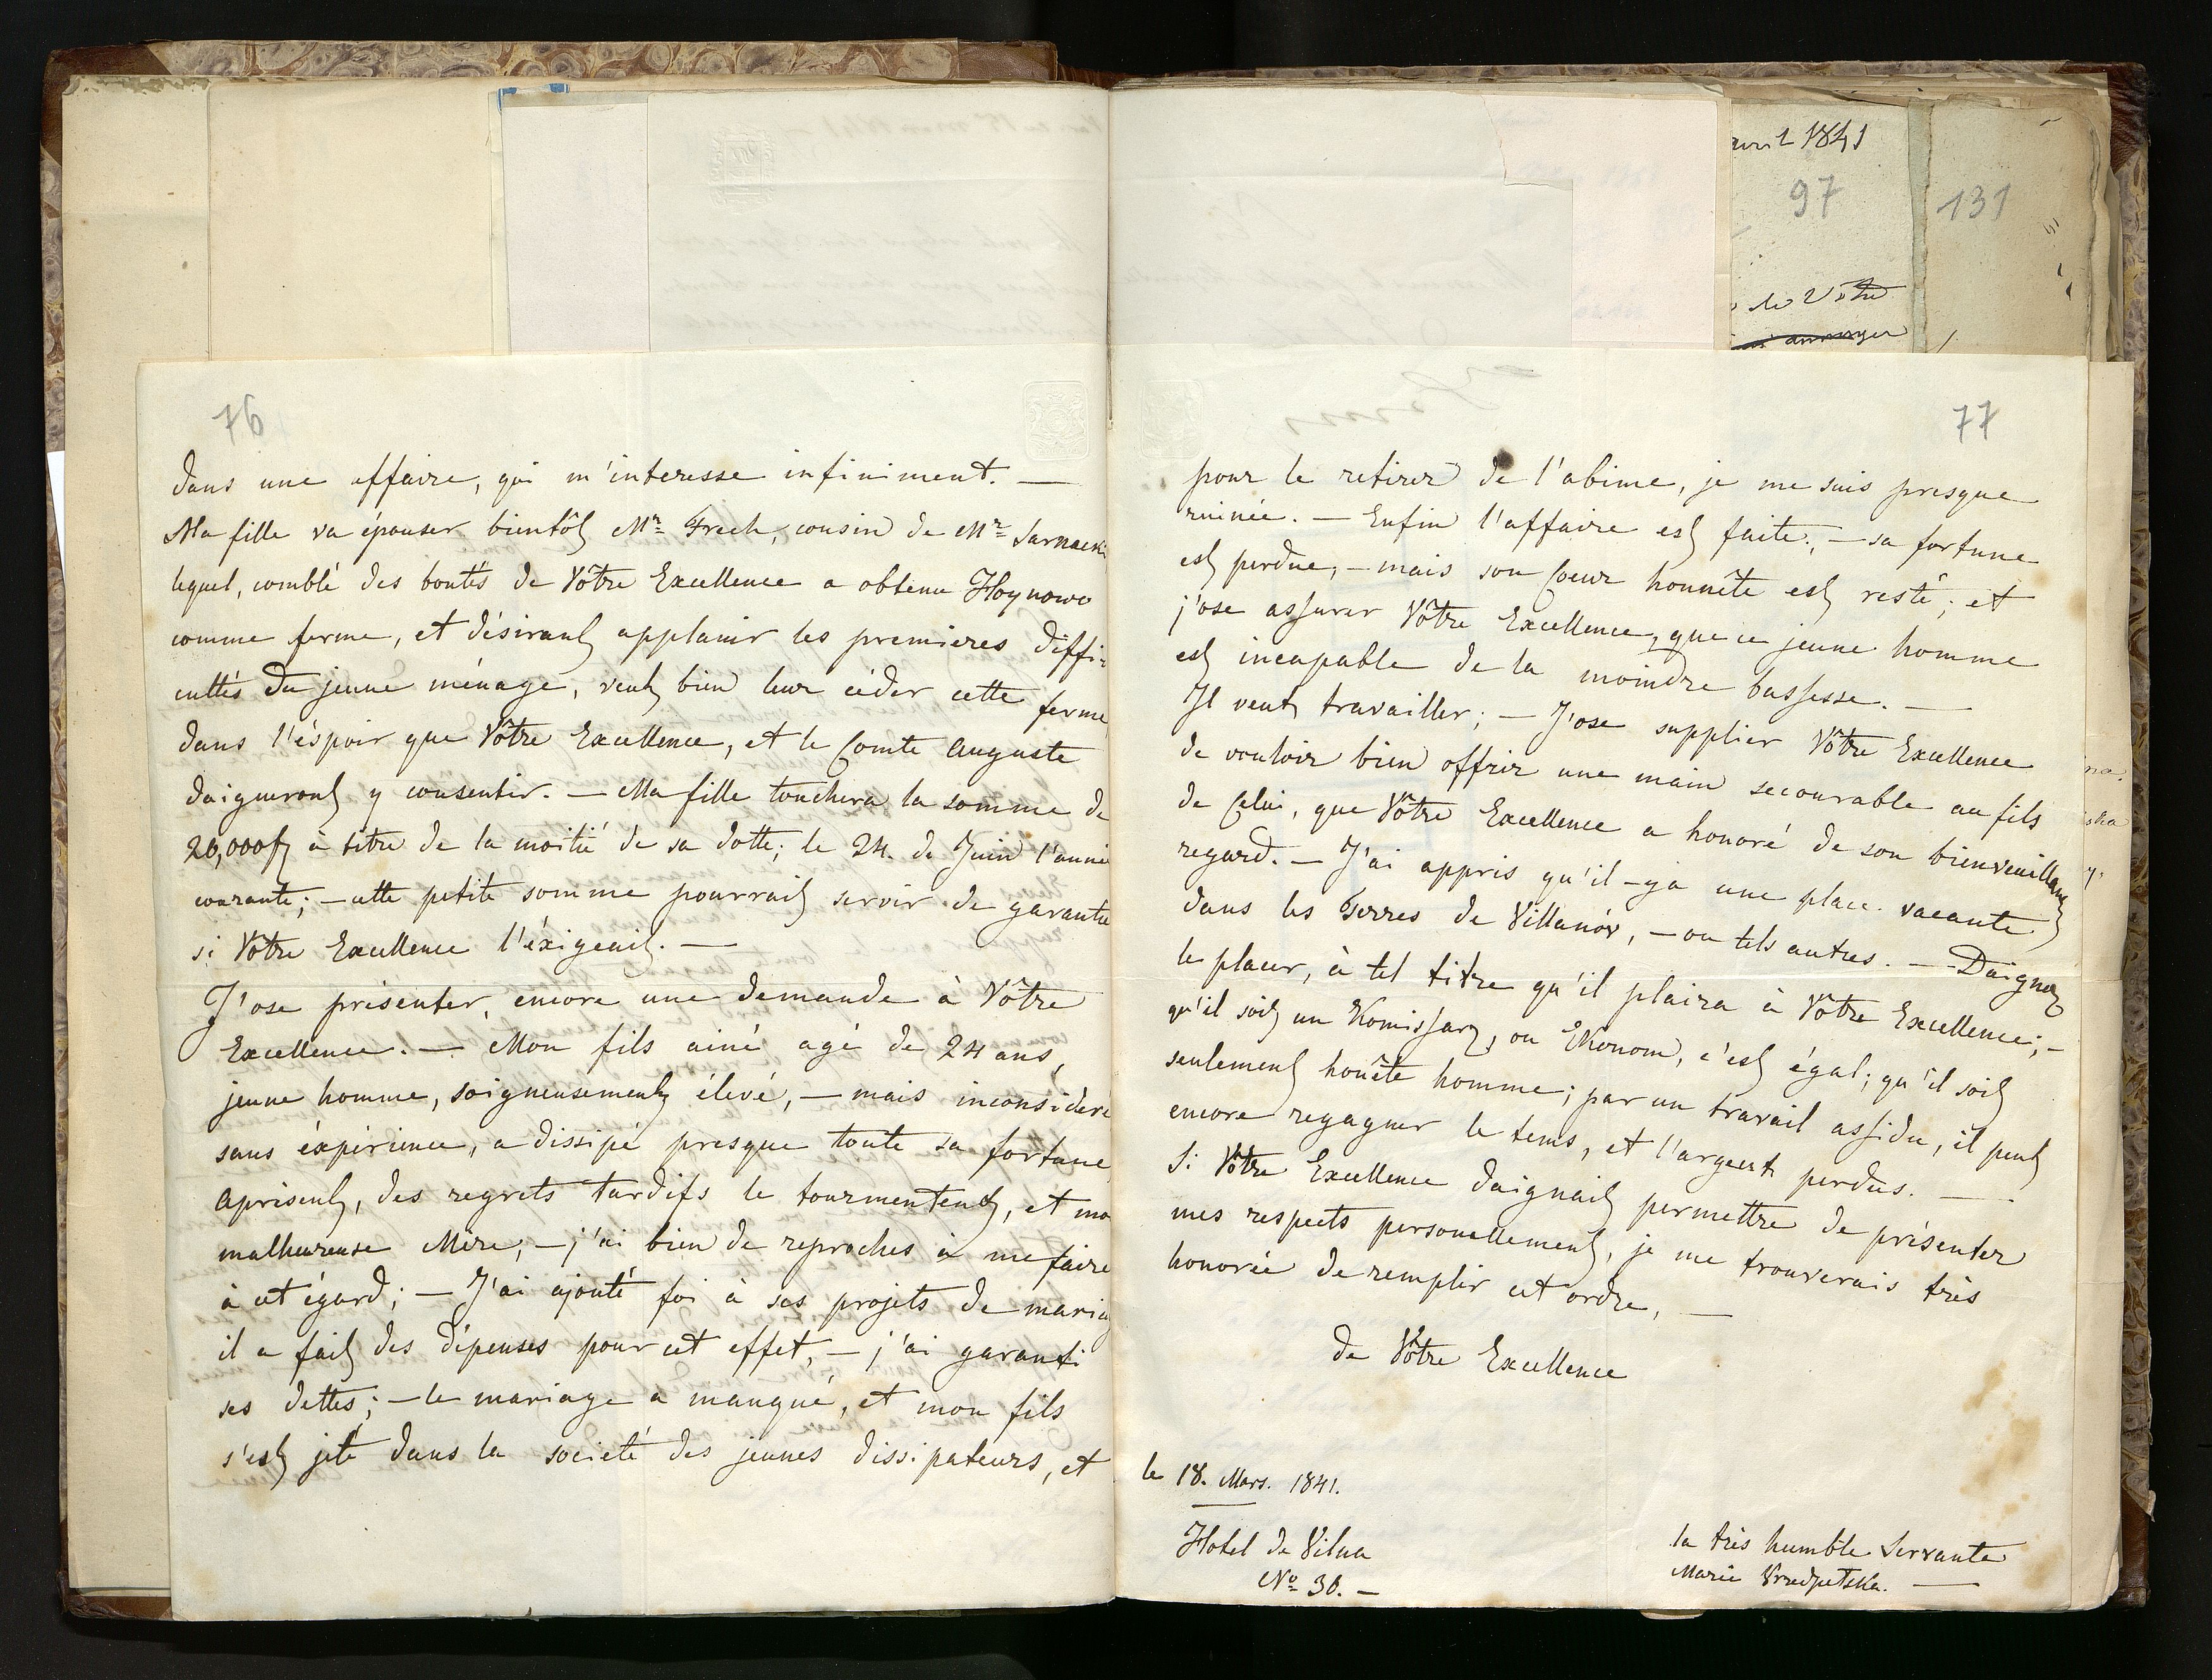 76
dans une affaire, qui m'interesse infiniment. —
Ma fille va épouser bientôt Mr Frech, cousin de Mr Sarnacki
lequel, comblé des bontés de Vôtre Excellence a obtenu Hoynowo
comme ferme, et désirant applanir les premieres diffi-
cultés du jeune ménage, veut bien leur céder cette ferme
dans l'éspoir que Vôtre Excellence, et le Comte Auguste
daigneront y consentir. — Ma fille touchera la somme de
20,000f à titre de la moitié de sa dotte; le 24. de Juin l'année
courante; — cette petite somme pourrait servir de garantie
si Vôtre Excellence l'éxigeait. —
J'ose présenter, encore une demande à Vôtre
Excellence. — Mon fils ainé agé de 24 ans,
jeune homme, soigneusement élevé, — mais inconsideré
sans éxpérience, a dissipé presque toute sa fortune
aprisent, des regrets tardifs le tourmentent, et moi
malheureuse Mère, — j'ai bien de reproches à me faire
à cet égard; — J'ai ajouté foi à ses projets de mariag
il a fait des dépenses pour cet effet, — j'ai garanti
ses dettes; — le mariage a manqué, et mon fils
s'est jeté dans la societé des jeunes dissipateurs, et
77
pour le retirer de l'abime, je me suis presque
ruinée. — Enfin l'affaire est faite, — sa fortune
est perdue, — mais son Coeur honnête est resté; et
j'ose assurer Vôtre Excellence, que ce jeune homme
est incapable de la moindre bassesse. —
Il veut travailler; — J'ose supplier Vôtre Excellence
de vouloir bien offrir une main secourable au fils
de Celui, que Vôtre Excellence a honoré de son bienveuillant
regard. — J'ai appris qu'il-ya une place vacante
dans les Terres de Villanóv, — ou tels autres. — Daignez
le placer, à tel titre qu'il plaira à Vôtre Excellence; —
qu'il soit un Komissarz, ou Ekonom, c'est égal; qu'il soit
seulement honête homme; par un travail assidu, il peut
encore regagner le tems, et l'argent perdus. —
Si Vôtre Excellence daignait permettre de présenter
mes respects personellement, je me trouverais très
honorée de remplir cet ordre, —
de Vôtre Excellence
le 18. Mars. 1841.
Hotel de Vilna
No 36. —
la très humble Servante
Marie —
avril 1841
97
de Vôtre
arranger
131